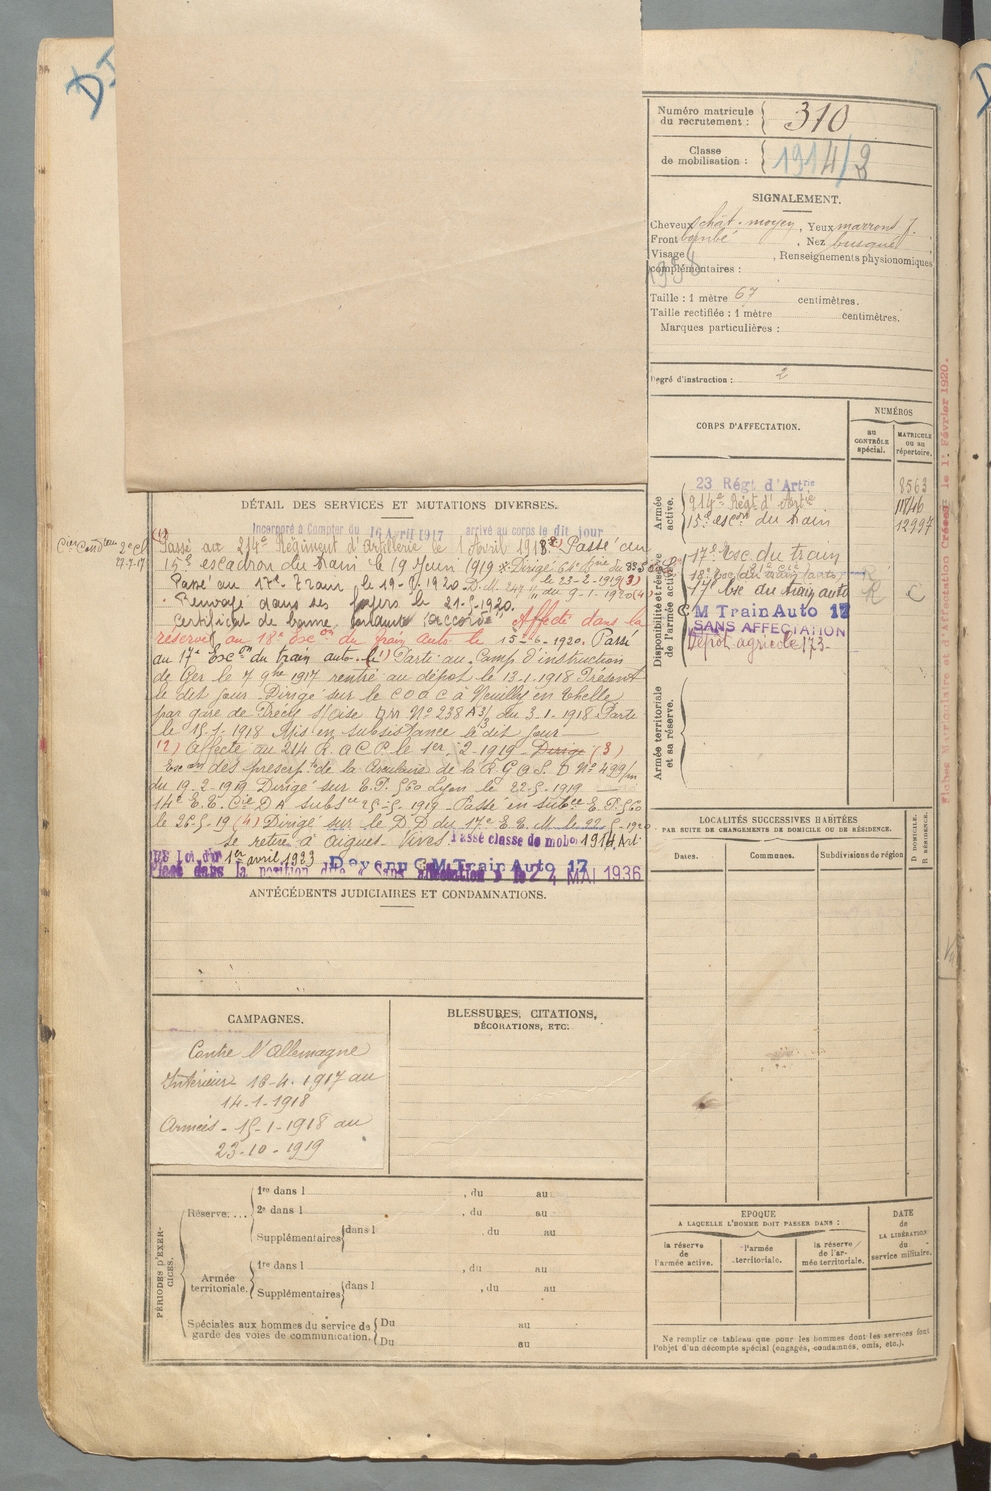 Numéro matricule
du recrutement : 310
Classe
de mobilisation : 1914/2
SIGNALEMENT.
Cheveux chât. moyen, Yeux marrons f.
Front bombé, Nez busqué
Visage , Renseignements physionomiques
complémentaires :
Taille : 1 mètre 67 centimètres.
Taille rectifiée : 1 mètre centimètres.
Marques particulières :
Degré d'instruction : 2
CORPS D'AFFECTATION.
NUMÉROS
au
CONTRÔLE
spécial.
MATRICULE
ou au
répertoire.
Armée
active.
23 Régt d'Artrie 8563
214e Régt d'Artie
15e escon du train 12997
Disponibilité et réserve
de l'armée active.
17e Esc. du train
17e Esc du train auto R C
C M Train Auto 17
SANS AFFECTATION
Dépôt agricole 173
Armée territoriale
et sa réserve.
DÉTAIL DES SERVICES ET MUTATIONS DIVERSES.
Incorporé à Compter du 16 Avril 1917 arrivé au corps le dit jour
Cier Condteur 2e Cl
27-7-17
(1)
Passé au 214e Régiment d'Artillerie le 1 Avril 1918 Passé au
15e escadron du train le 19 Juin 1919 Dirigé
le 23-2-1919 (3)
Passé au 17e Train, le 19-1-1920 D.M. 247 du 9-1-1920 (4)
Renvoyé dans ses foyers le 21-5-1920.
Certificat de bonne conduite "accordé" Affecté dans la
réserve au 18e Escon du train auto le 15-6-1920. Passé
au 17e Escon du train auto. (1) Parti au Camp d'instruction
de Ger le 7 9bre 1917 rentré au dépôt le 13-1-1918 Présent
le dit jour Dirigé sur le C O A C à Neuilly en Thelle
par gare de Précy s/Oise DM No 238 A 3/3 du 3-1-1918 Parti
le 15-1-1918 Mis en subsistance le dit jour
(2) Affecté au 214 R. A C P. le 1er-2-1919 Dirigé (3)
Exon des prescripts de la Circulaire de la R G A S. D No 499/m
du 19-2-1919 Dirigé sur E. P. 560 Lyon le 22-5-1919
14e E. E. Cie D A subsce 25-5-1919 Passé en subce E. P. 560
le 26-5-19 (4) Dirigé sur le D D du 17e E. E. M. le 22-5-1920
Se retire à Aigues-Vives Passé classe de mobon 1914, Art.
58 Loi du 1er avril 1923 Devenu C M Train Auto 17
Placé dans la position dite « Sans affectation » le 4 MAI 1936
ANTÉCÉDENTS JUDICIAIRES ET CONDAMNATIONS.
CAMPAGNES.
Contre l'Allemagne
Intérieur 18-4-1917 au
14-1-1918
Armées - 15-1-1918 au
23-10-1919
BLESSURES, CITATIONS,
DÉCORATIONS, ETC.
LOCALITÉS SUCCESSIVES HABITÉES
PAR SUITE DE CHANGEMENTS DE DOMICILE OU DE RÉSIDENCE.
D DOMICILE.
R RÉSIDENCE.
Dates. Communes. Subdivisions de région
PÉRIODES D'EXERCICES.
Réserve....
1re dans l , du au
2e dans l , du au
Supplémentaires dans l , du au
Armée
territoriale.
1re dans l , du au
Supplémentaires dans l , du au
Spéciales aux hommes du service de
garde des voies de communication.
Du au
Du au
EPOQUE
A LAQUELLE L'HOMME DOIT PASSER DANS :
la réserve
de
l'armée active.
l'armée
territoriale.
la réserve
de l'ar-
mée territoriale.
DATE
de
LA LIBÉRATION
du
service militaire.
Ne remplir ce tableau que pour les hommes dont les services font
l'objet d'un décompte spécial (engagés, condamnés, omis, etc.).